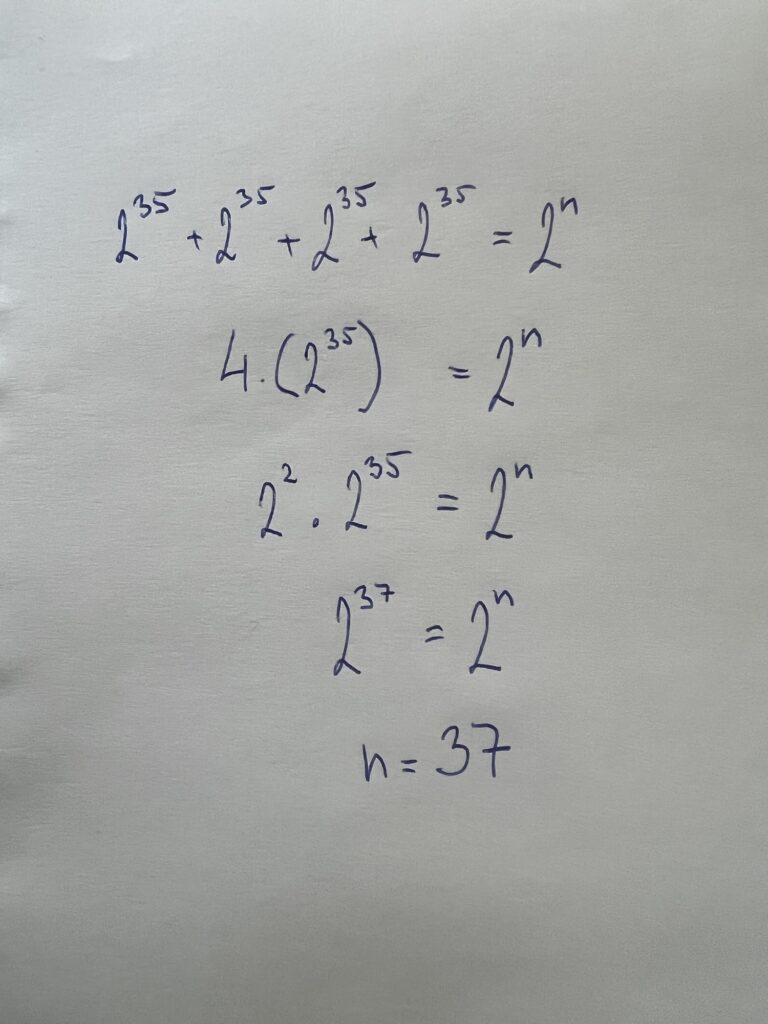 2³⁵ + 2³⁵ + 2³⁵ + 2³⁵ = 2ⁿ
4·(2³⁵) = 2ⁿ
2² · 2³⁵ = 2ⁿ
2³⁷ = 2ⁿ
n = 37